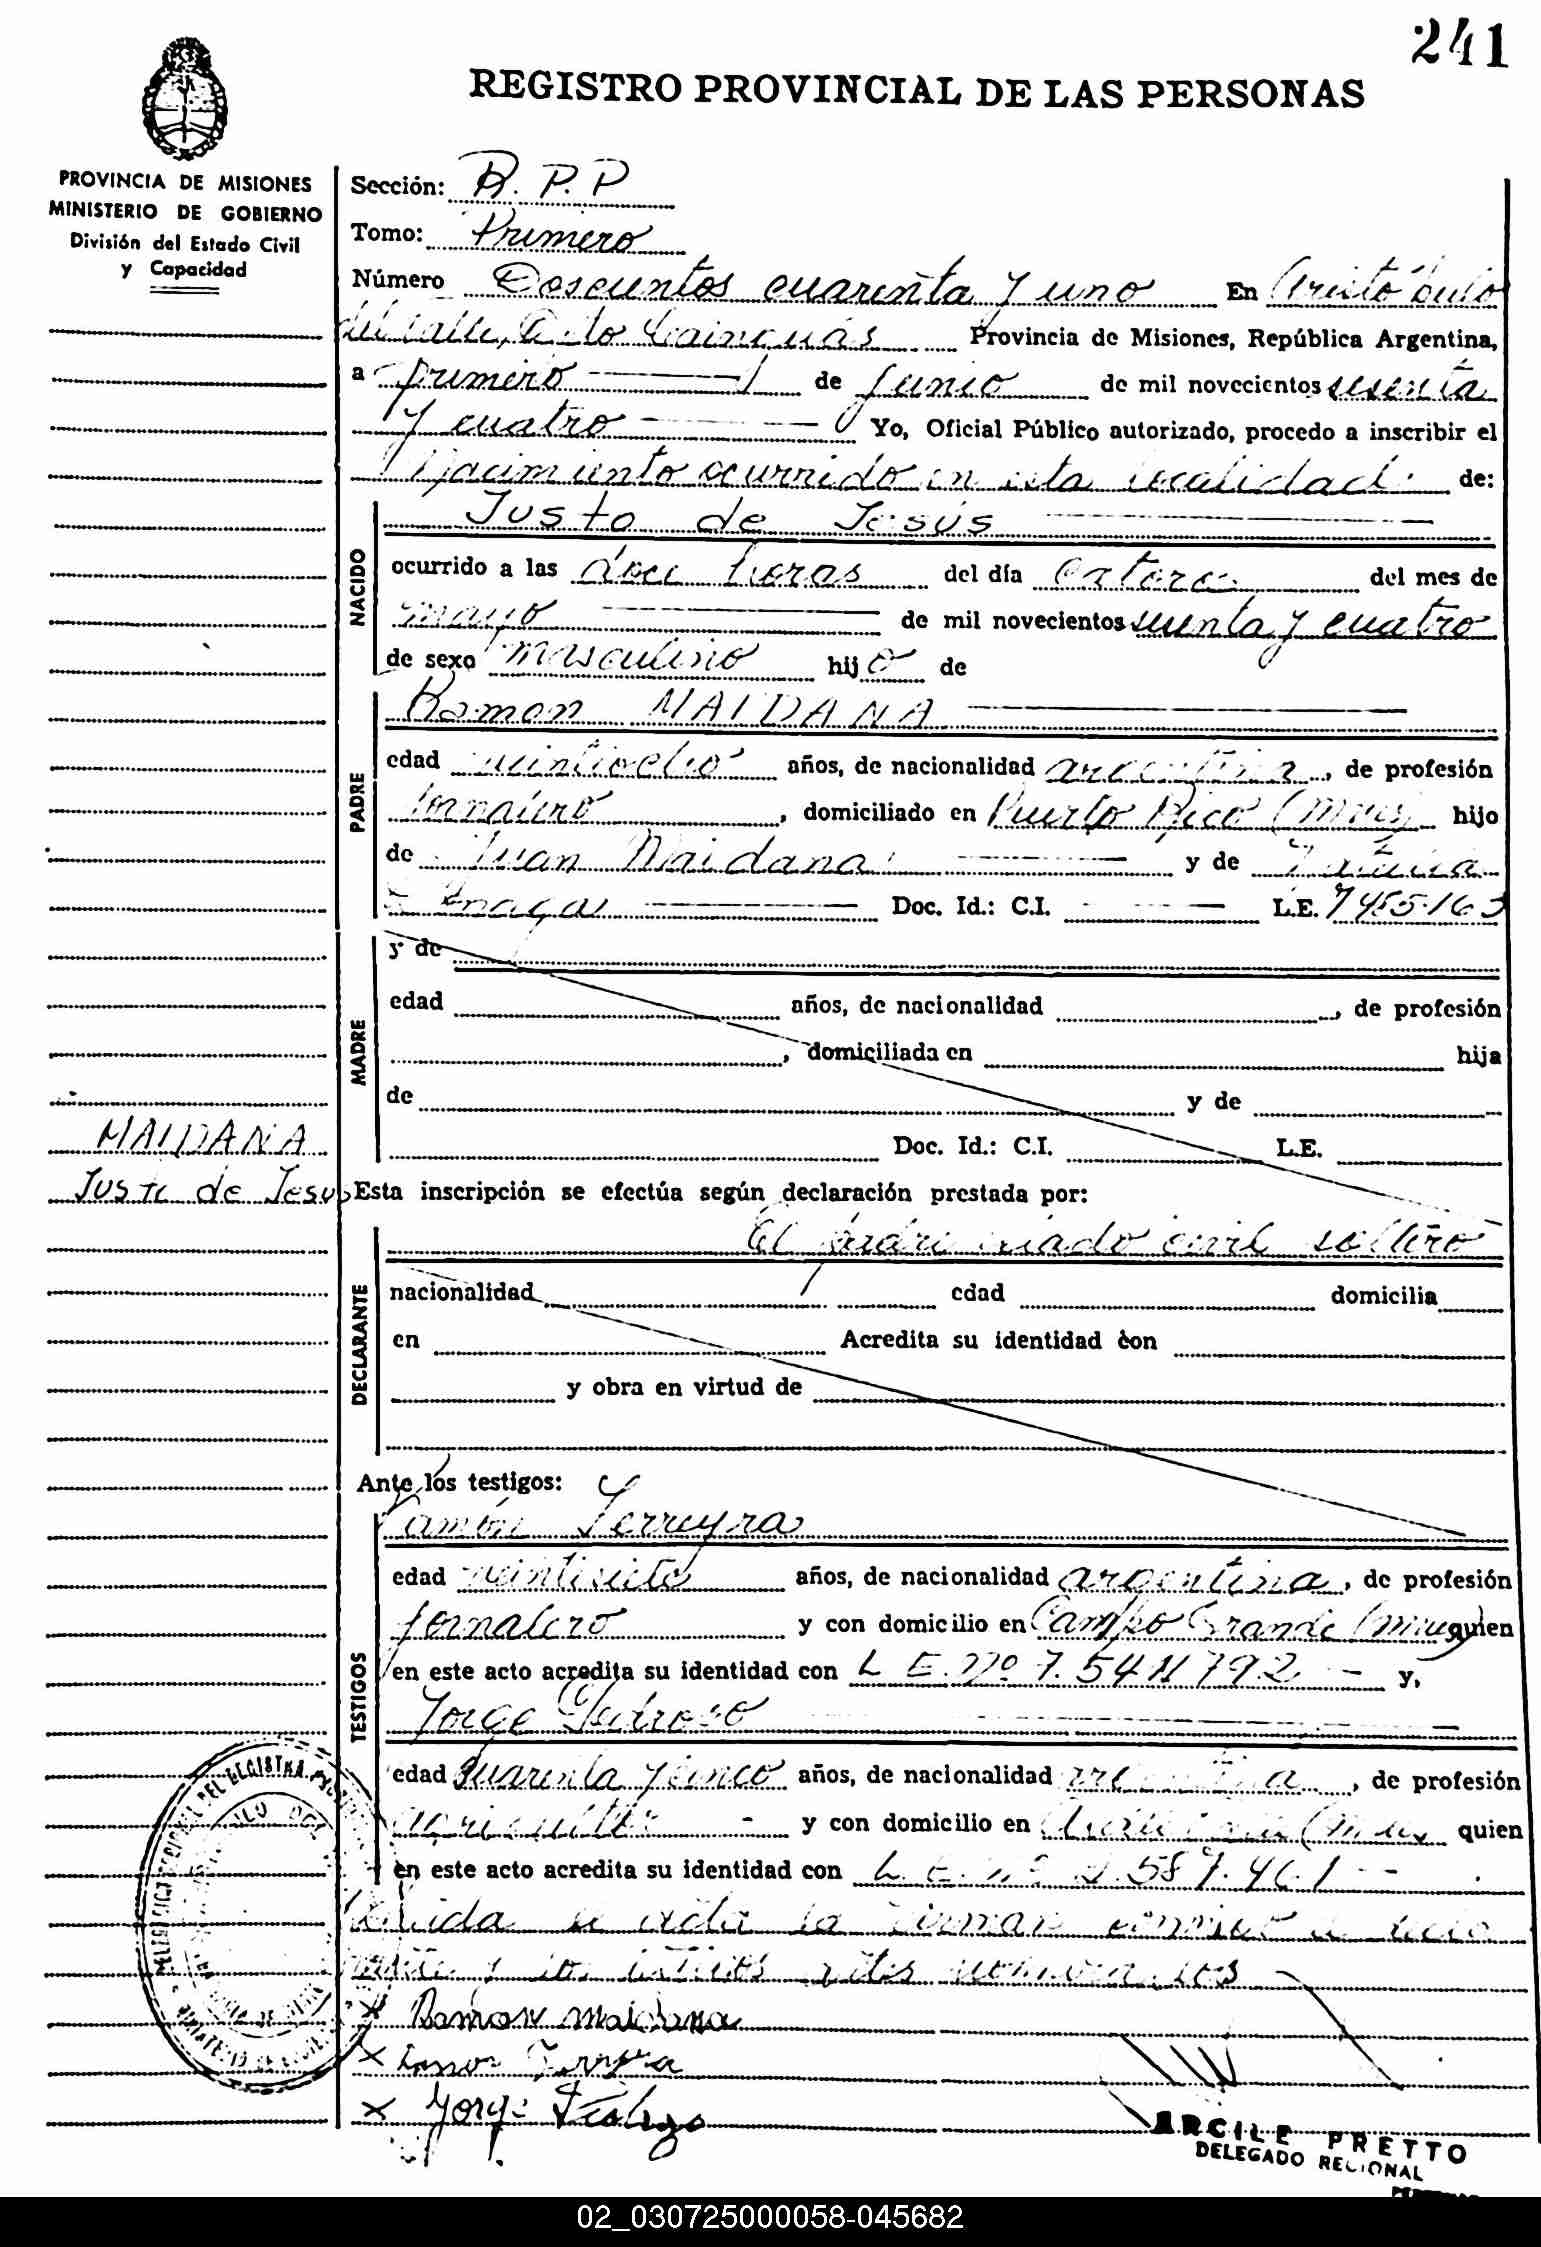 241
REGISTRO PROVINCIAL DE LAS PERSONAS
PROVINCIA DE MISIONES
MINISTERIO DE GOBIERNO
División del Estado Civil
y Capacidad
Sección: R. P. P
Tomo: Primero
Número Doscientos cuarenta y uno En Aristóbulo
del Valle, Dto Cainguás Provincia de Misiones, República Argentina,
a primero de Junio de mil novecientos sesenta
y cuatro Yo, Oficial Público autorizado, procedo a inscribir el
Nacimiento ocurrido en esta localidad de:
NACIDO
Justo de Jesús
ocurrido a las doce horas del día catorce del mes de
mayo de mil novecientos sesenta y cuatro
de sexo masculino hijo de
PADRE
Ramon MAIDANA
edad veintiocho años, de nacionalidad argentina, de profesión
Jornalero, domiciliado en Puerto Rico (Mnes) hijo
de Juan Maidana y de
Doc. Id.: C.I. L.E. 7455163
MADRE
y de
edad años, de nacionalidad , de profesión
, domiciliada en hija
de y de
Doc. Id.: C.I. L.E.
MAIDANA
Justo de Jesus
Esta inscripción se efectúa según declaración prestada por:
DECLARANTE
El padre estado civil soltero
nacionalidad edad domicilia
en Acredita su identidad con
y obra en virtud de
Ante los testigos:
TESTIGOS
Ramón Ferreyra
edad veintisiete años, de nacionalidad argentina, de profesión
Jornalero y con domicilio en Campo Grande (Mnes) quien
en este acto acredita su identidad con L E. Nº 7.541792 y,
Jorge Pedrozo
edad cuarenta y cinco años, de nacionalidad argentina, de profesión
agricultor y con domicilio en (Mnes) quien
en este acto acredita su identidad con L. E. Nº 587.461
Leida el acta la firman conmigo el decla
rante y los testigos antes nombrados
x Ramon maidana
x Ramon Ferreyra
x Jorge
ARCILE PRETTO
DELEGADO REGIONAL
02_030725000058-045682